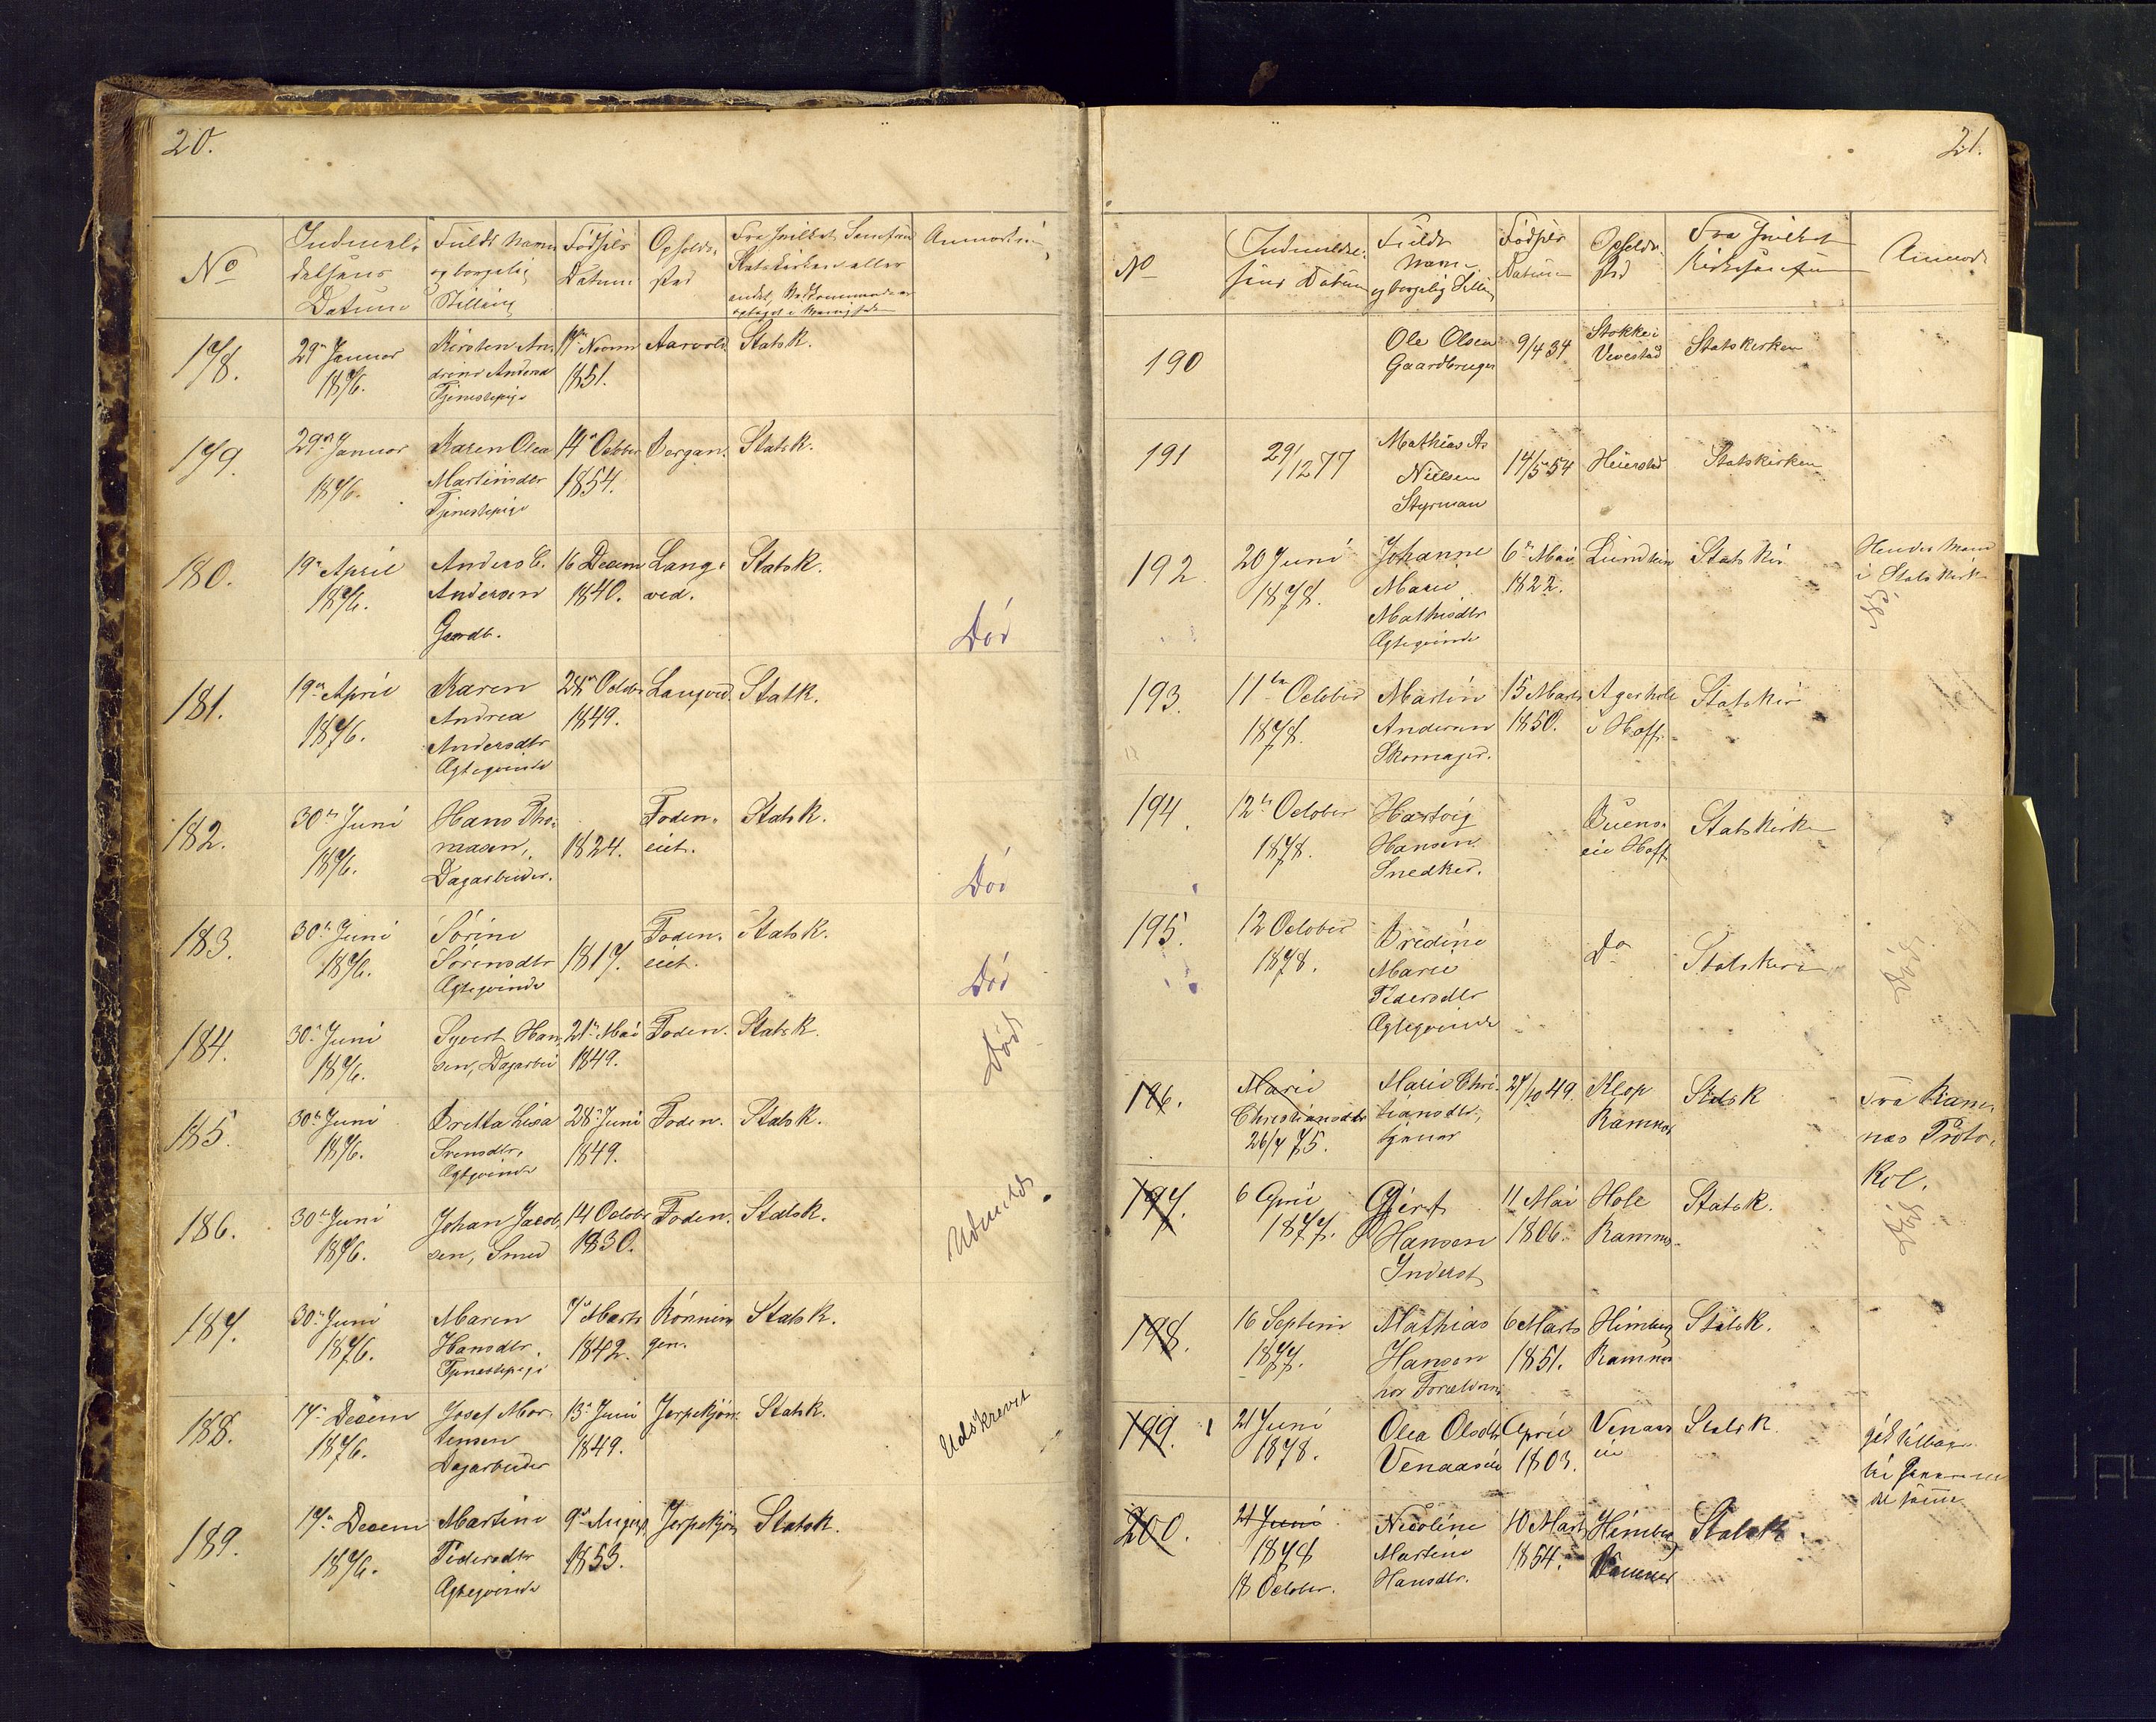 20.
No
Indmel-
delsens
Datum
Fulde Navn
og borgelig
Stilling
Fødsels
Datum
Opholds-
sted
Fra hvilket Samfun
Statskirken eller
andet,
Anmærkn
178.
29n Januar
1876.
Kirsten An-
drine Andersd
Tjenestepige
1851.
Statsk.
179.
29n Januar
1876.
Karen Olea
Martinsdtr
Tjenestepige
14n October
1854.
Bergan.
Statsk.
180.
19n April
1876.
Anders C.
Andersen
Gardb.
16 Decem
1840.
Lang-
ved.
Statsk.
Død
181.
19n April
1876.
Karen
Andrea
Andersdtr
Ægteqvinde
1849.
Langved.
Statk.
182.
30n Juni
1876.
Hans Tho-
masen,
Dagarbeider.
1824.
Foden-
eiet.
Statsk.
Død
183.
30n Juni
1876.
Sørine
Sørensdtr
Ægteqvinde
1817.
Foden-
eiet.
Statsk.
Død
184.
30n Juni
1876.
Syvert Han-
sen, Dagarbei
21n Mai
1849.
Foden.
Statsk.
Død
185.
30n Juni
1876.
Britta Lisa
Svensdtr,
Ægteqvinde
28n Juni
1849.
Foden.
Statsk.
186.
30n Juni
1876.
Johan Jacob-
sen, Smed
14 Octobr
1830.
Foden.
Statsk.
Udmeldt
187.
30n Juni
1876.
Maren
Hansdtr.
Tjenestepige
7n Marts
1842.
Rønnin-
gen.
Statsk.
188.
17n Decem
1876.
Josef Mor-
tensen
Dagarbeider
13n Juni
1849.
Jerpekjøn.
Statsk.
Udskrevet
189.
17n Decem
1876.
Martine
Pedersdtr
Ægteqvinde
9n August
1853.
Jerpekjøn
Statsk.
21.
No
Indmeldel-
sens Datum
Fulde
Navn
og borgelig Stilling
Fødsels
Datum
Opholds-
sted
Fra hvilket
Kirkesamfun
Anmærk
190
Ole Olsen
Gaardbruger
9/4 34
Stokke
Vivestad
Statskirken
191
29/12 77
Mathias As
Nielsen
Styrman
14/5 54
Heierstad
Statskirken
192
20 Juni
1878.
Johanne
Marie
Mathisdtr
Ægteqvinde
6n Mai
1822.
Statskir
Hendes Mand
i Statskirk
193.
11te October
1878.
Martin
Andersen
Skomager.
15 Marts
1850.
Agerholt
i Hoff.
Statskir
194.
12te October
1878.
Hartvig
Hansen
Snedker.
Buens-
eie Hoff
Statskirke
195.
12 October
1878.
Bredine
Marie
Pedersdtr
Ægteqvinde
Do
Statskir
Død
196.
Marie
Christiansdtr
26/4 75.
Marie Chri-
tiansdtr,
tjener
27/10 49.
Klop
Ramnes
Statsk
Fra Ram-
nes Proto-
kol.
197.
6 April
1877.
Gjert
Hansen
Inderst
11 Mai
1806.
Hole
Ramnes
Statsk.
Død
198.
16 Septem
1877.
Mathias
Hansen
hos Forældrene
6 Marts
1851.
Himberg
Ramnes
Statsk.
199.
21 Juni
1878.
Olea Olsdtr
Venaaseie
April
1803.
Venaas
eie
Statsk.
gik tilbage
til
200.
21 Juni
1878
18 October.
Nicoline
Martine
Hansdtr.
10 Marts
1854.
Himberg
Statsk.